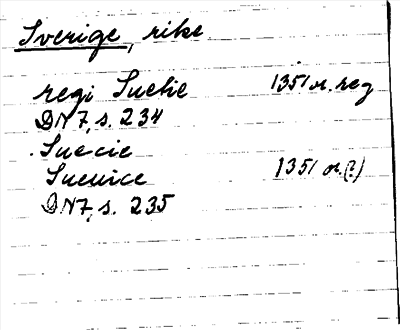 Sverige, rike
regi Suetie 1351 or. reg
DN 7, s. 234
Suecie
Suenice 1351 or. (?)
DN 7, s. 235